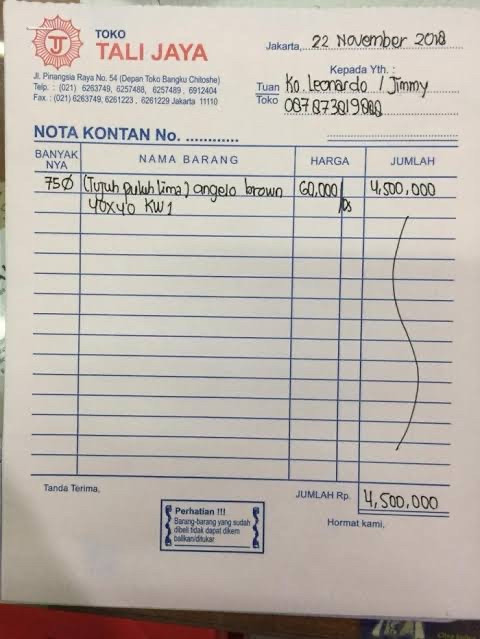 TJ
TOKO
TALI JAYA
Jl. Pinangsia Raya No. 54 (Depan Toko Bangku Chitoshe)
Telp. : (021) 6263749, 6257488, 6257489 , 6912404
Fax. : (021) 6263749, 6261223 , 6261229 Jakarta 11110
Jakarta, 22 November 2018
Kepada Yth. :
Tuan Ko. Leonardo / Jimmy
Toko 087873819888
NOTA KONTAN No. ............
BANYAK NYA NAMA BARANG HARGA JUMLAH
75Ø (Tujuh puluh lima) angelo brown 60,000 /ds 4,500,000
40x40 KW1
Tanda Terima,
JUMLAH Rp. 4,500,000
Hormat kami,
Perhatian !!!
Barang-barang yang sudah
dibeli tidak dapat dikem
balikan/ditukar